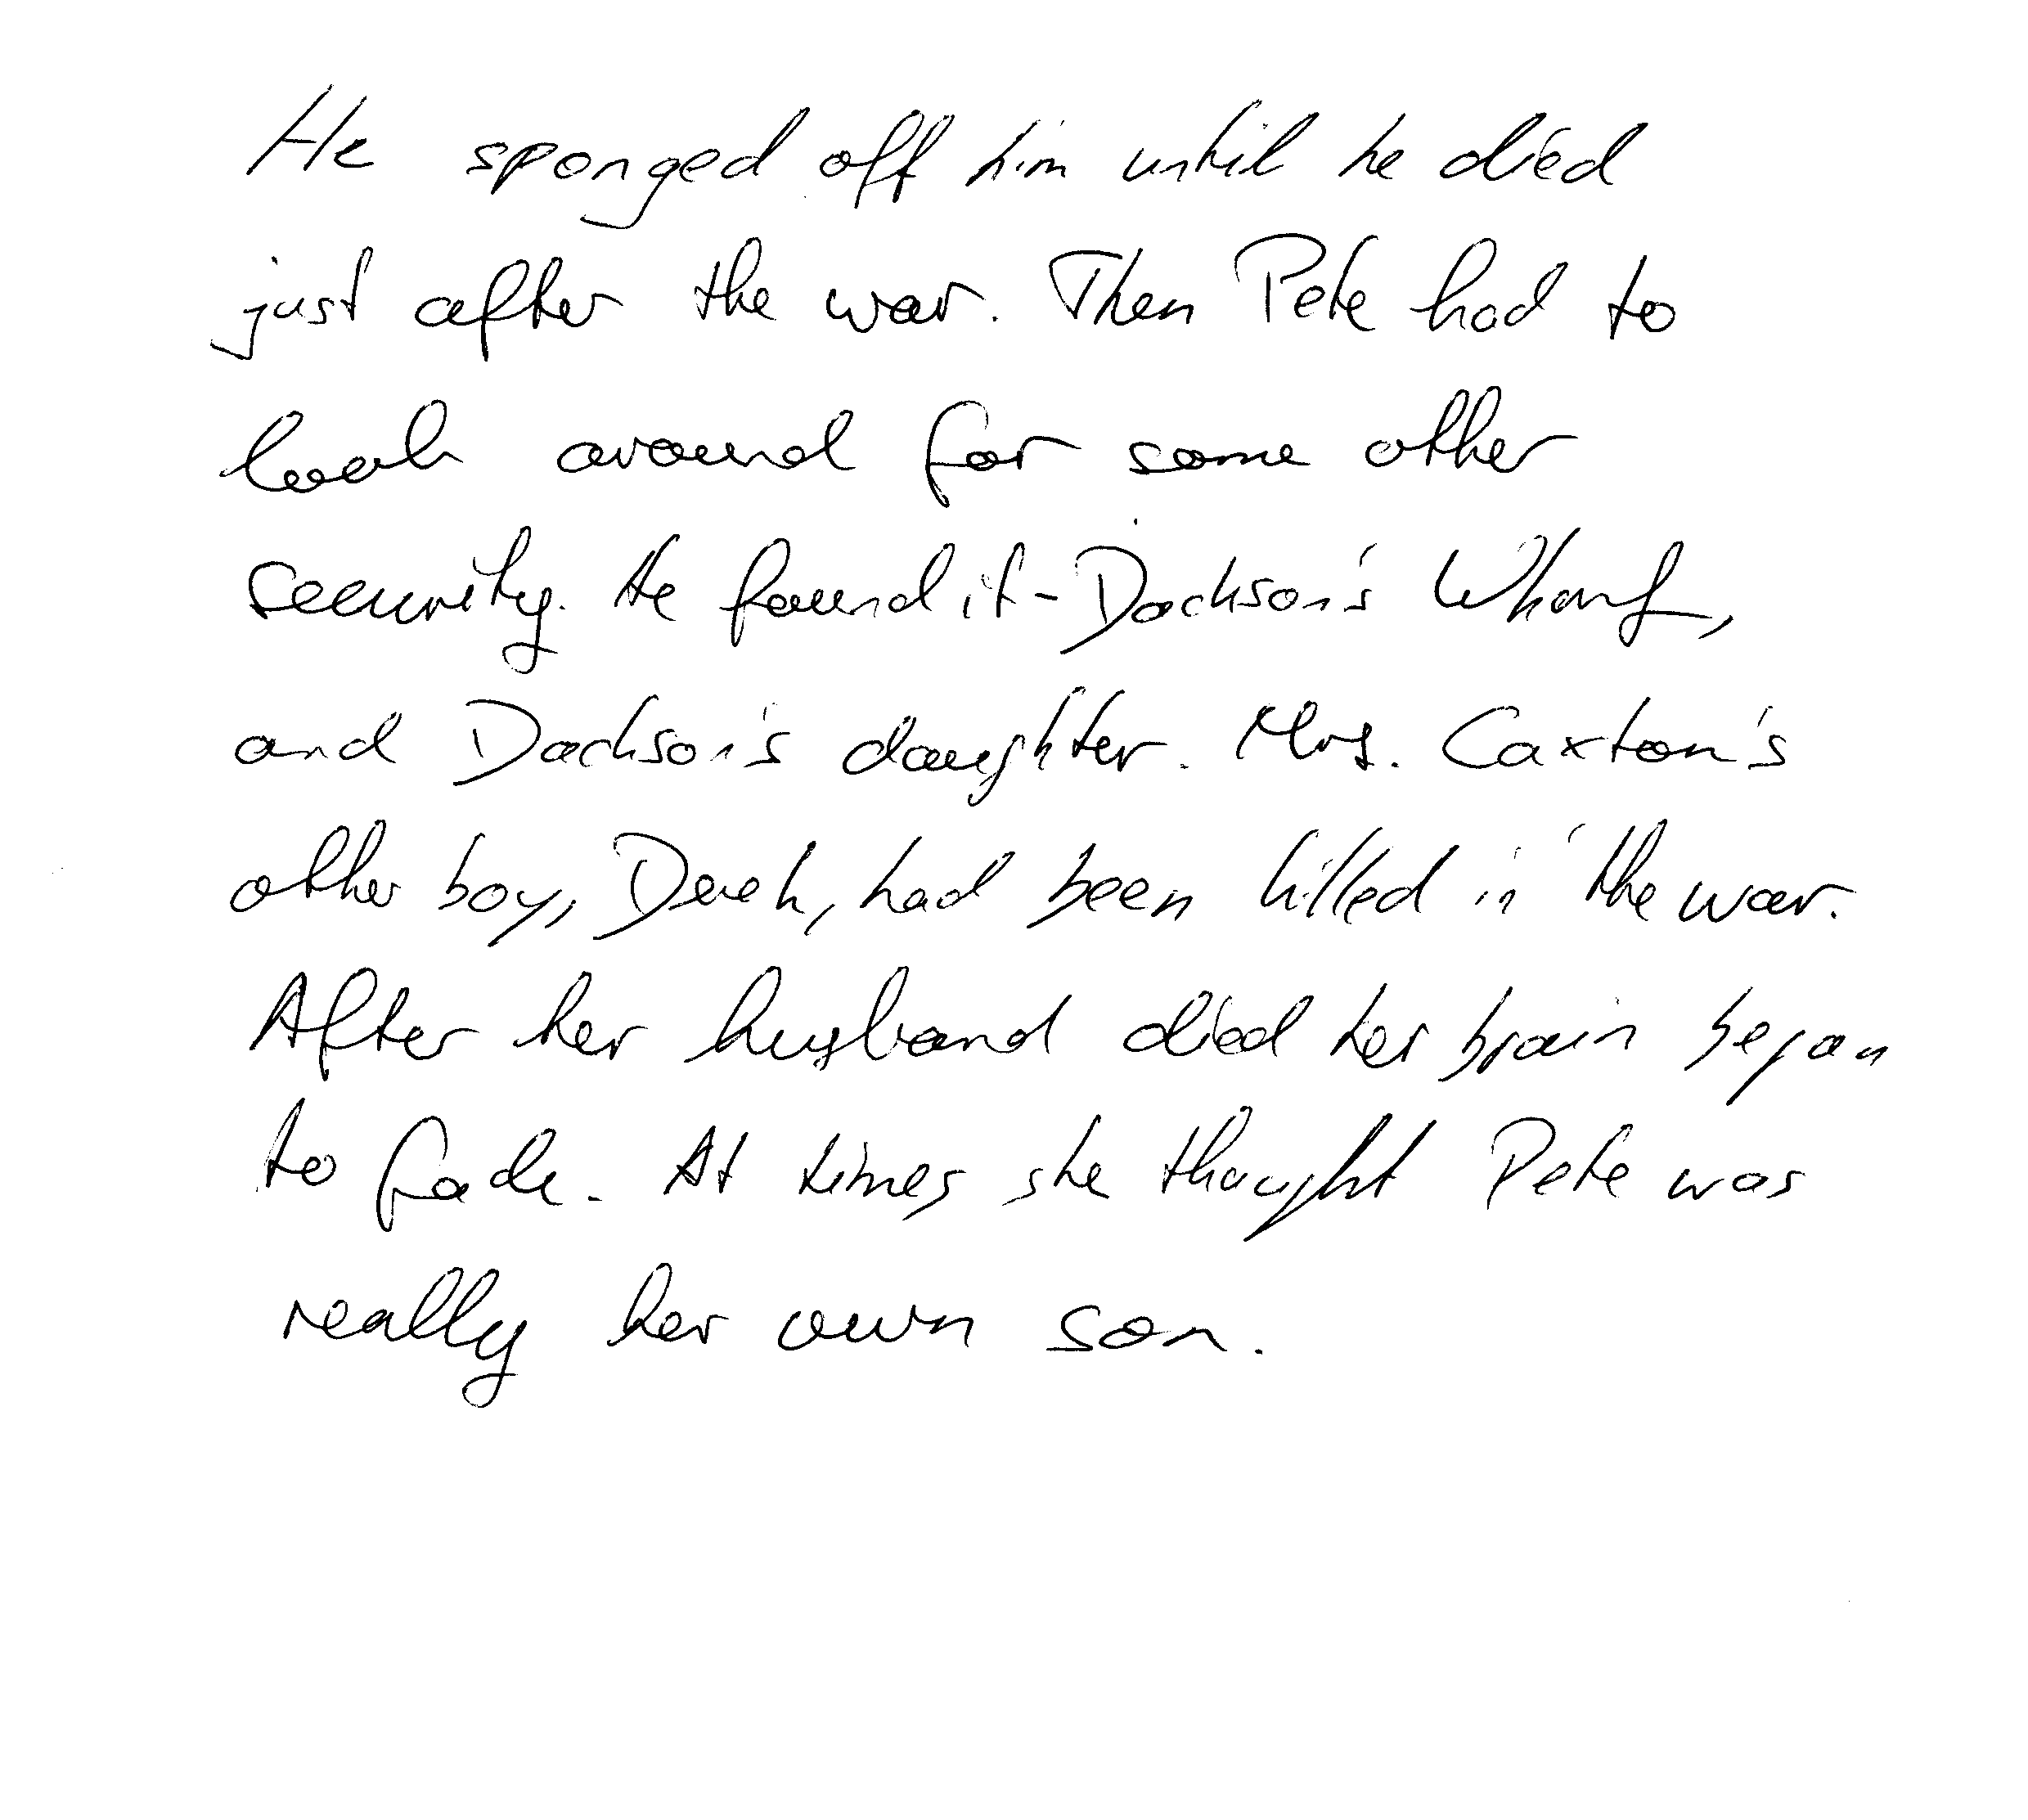 He sponged off him until he died
just after the war. Then Pete had to
look around for some other
security. He found it - Dockson's Wharf,
and Dockson's daughter. Mrs. Caxton's
other boy, Derek, had been killed in the war.
After her husband died her brain began
to fade. At times she thought Pete was
really her own son.